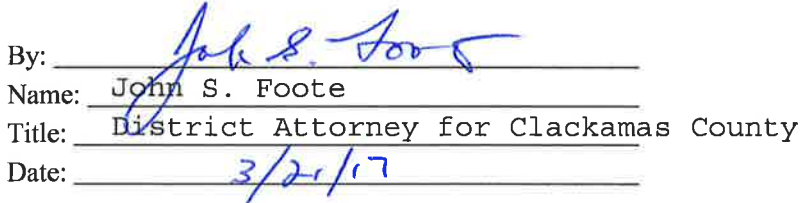 By: John S. Foote
Name: John S. Foote
Title: District Attorney for Clackamas County
Date: 3/21/17